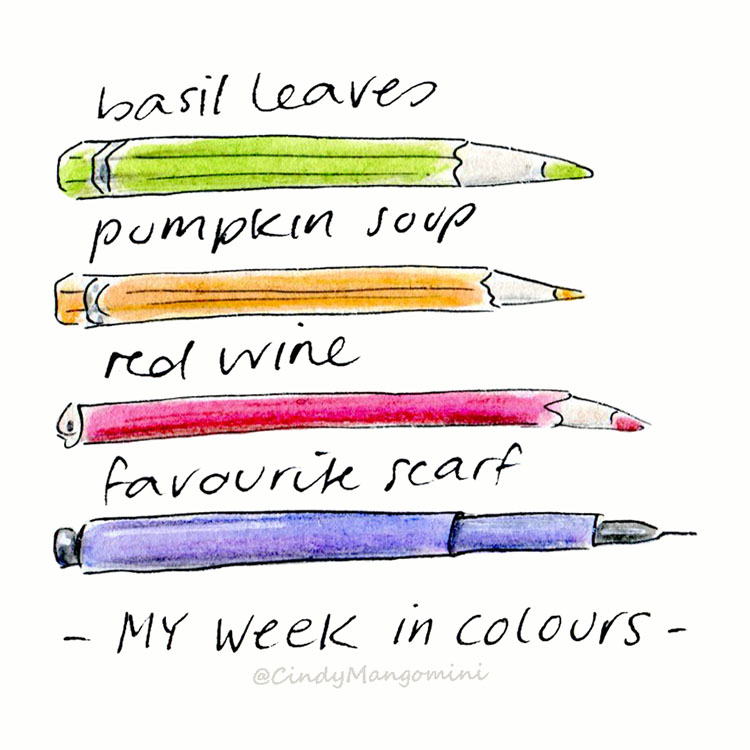 basil leaves
pumpkin soup
red wine
favourite scarf
- MY WEEK in colours -
@CindyMangomini